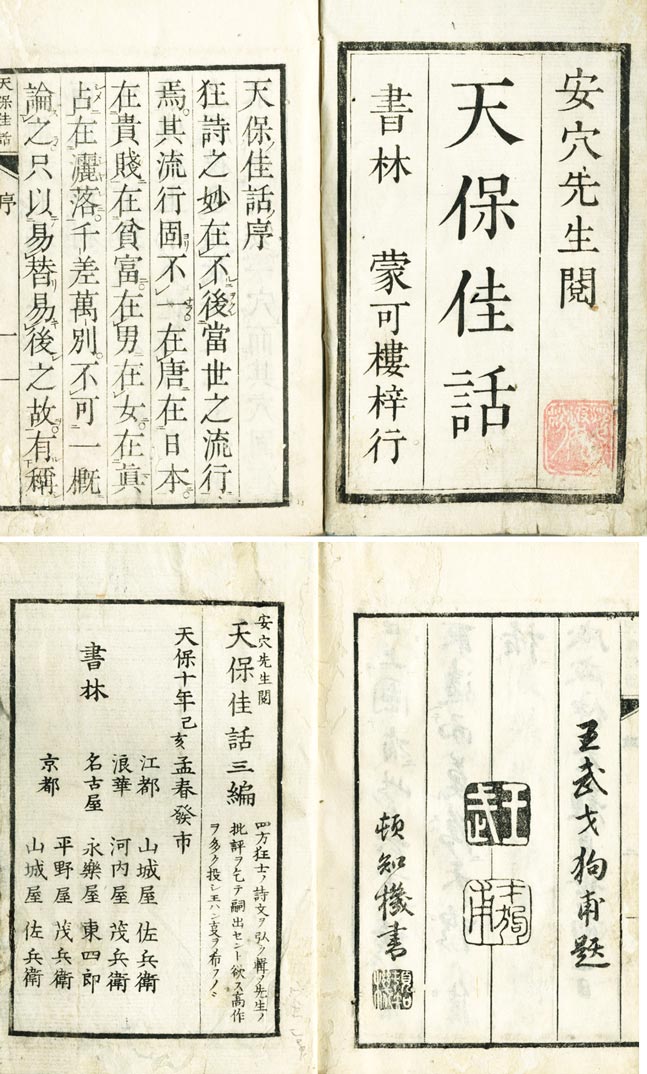 安穴先生閲
天保佳話
書林 蒙可樓梓行
天保佳話序
狂詩之妙在不後當世之流行
焉其流行固不一在唐在日本
在貴賤在貧富在男在女在眞
占在灑落千差萬別不可一概
論之只以易替易後之故有稱
天保佳話 序 一
王武戈狗甫題
王武
頓知機書
安穴先生閲
天保佳話三編
四方狂士ノ詩文ヲ弘ク輯メ先生ノ
批評ヲ乞テ嗣出セント欲ス高作
ヲ多ク投シ玉ハンヿヲ希フノミ
天保十年己亥孟春發市
書林
江都 山城屋佐兵衛
浪華 河内屋茂兵衛
名古屋 永樂屋東四郎
京都 平野屋茂兵衛
山城屋佐兵衛